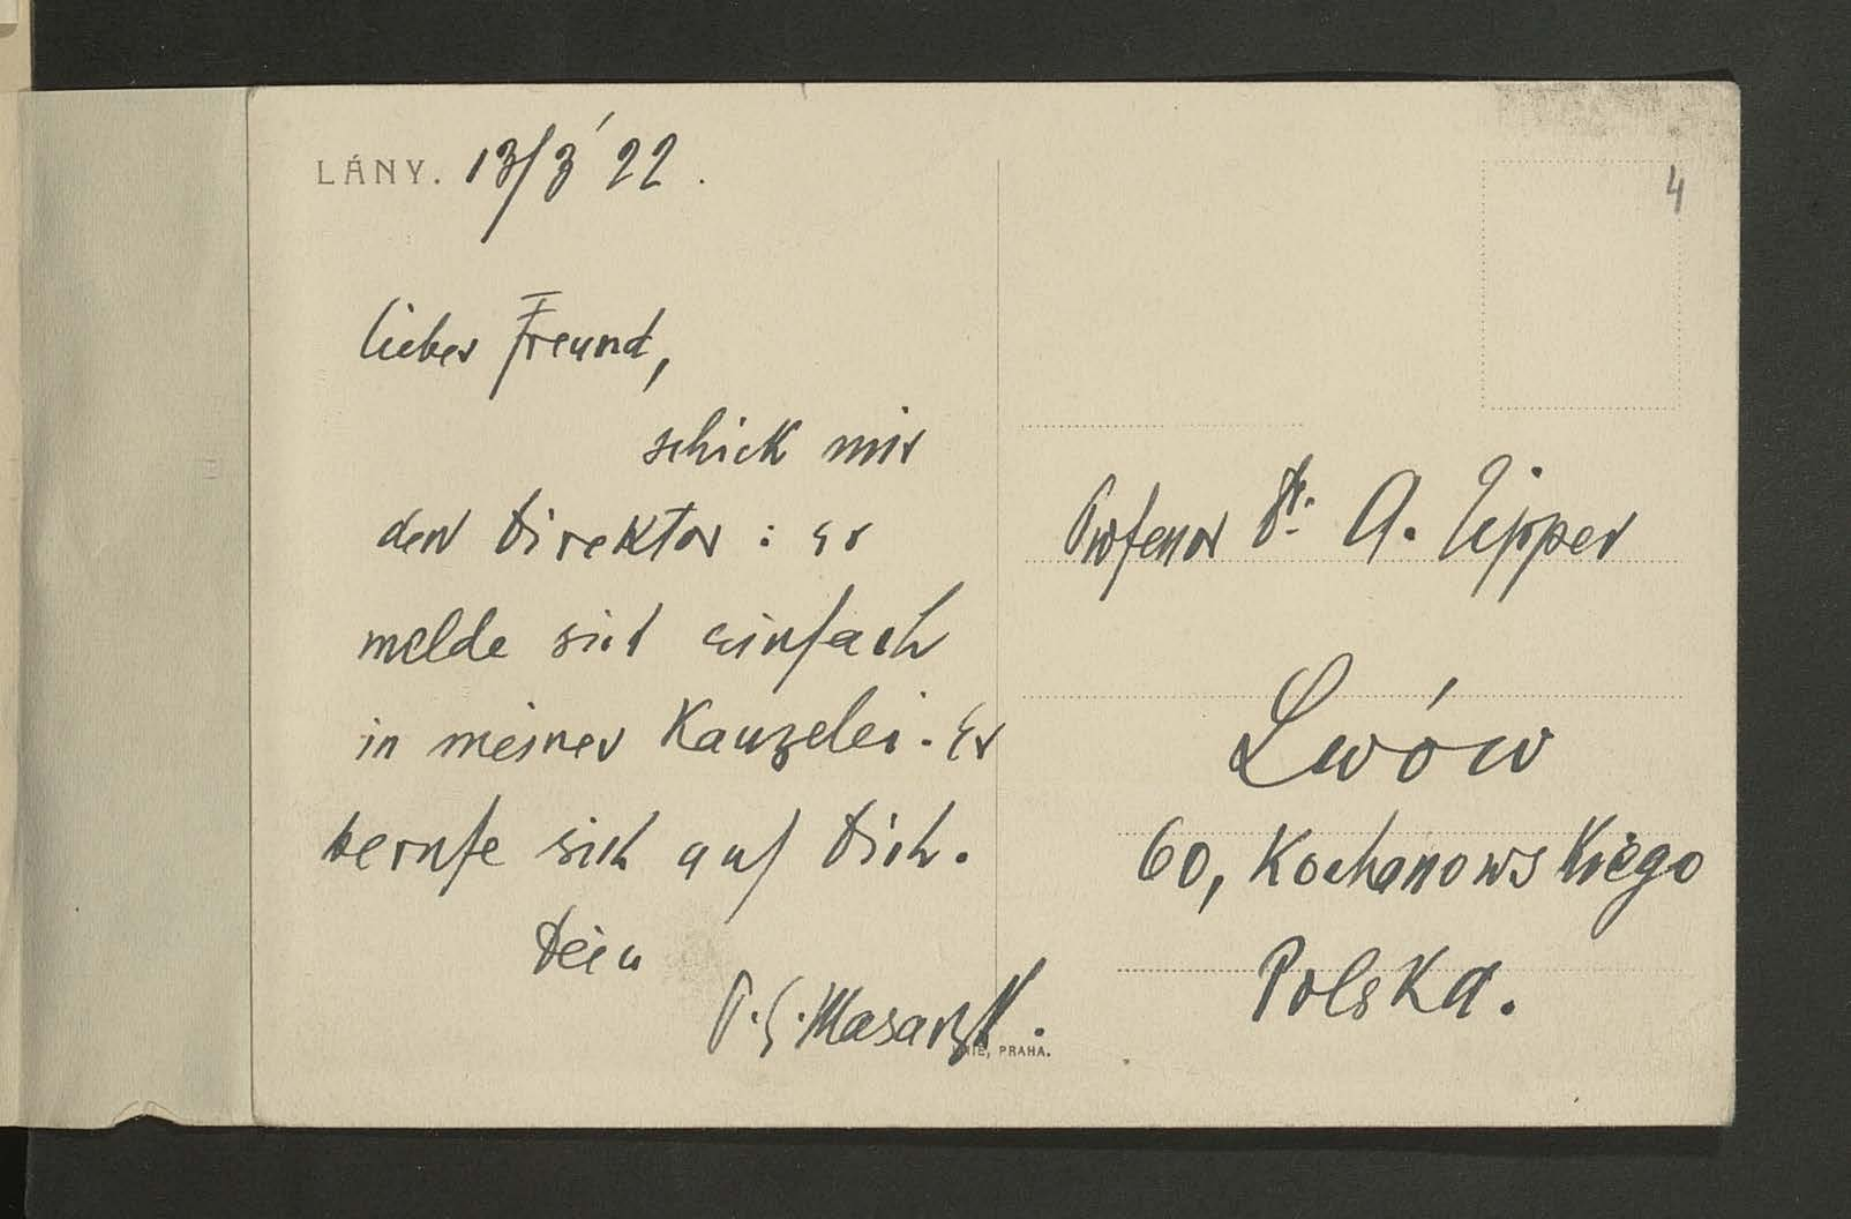 LÁNY. 13/3 22.
lieber Freund,
schick mir
den Direktor : er
melde sich einfach
in meiner Kanzelei. Er
berufe sich auf Dich.
Dein
T. G. Masaryk.
UNIE, PRAHA.
4
Professor Dr. A.
Lwów
60, Kochanowskiego
Polska.